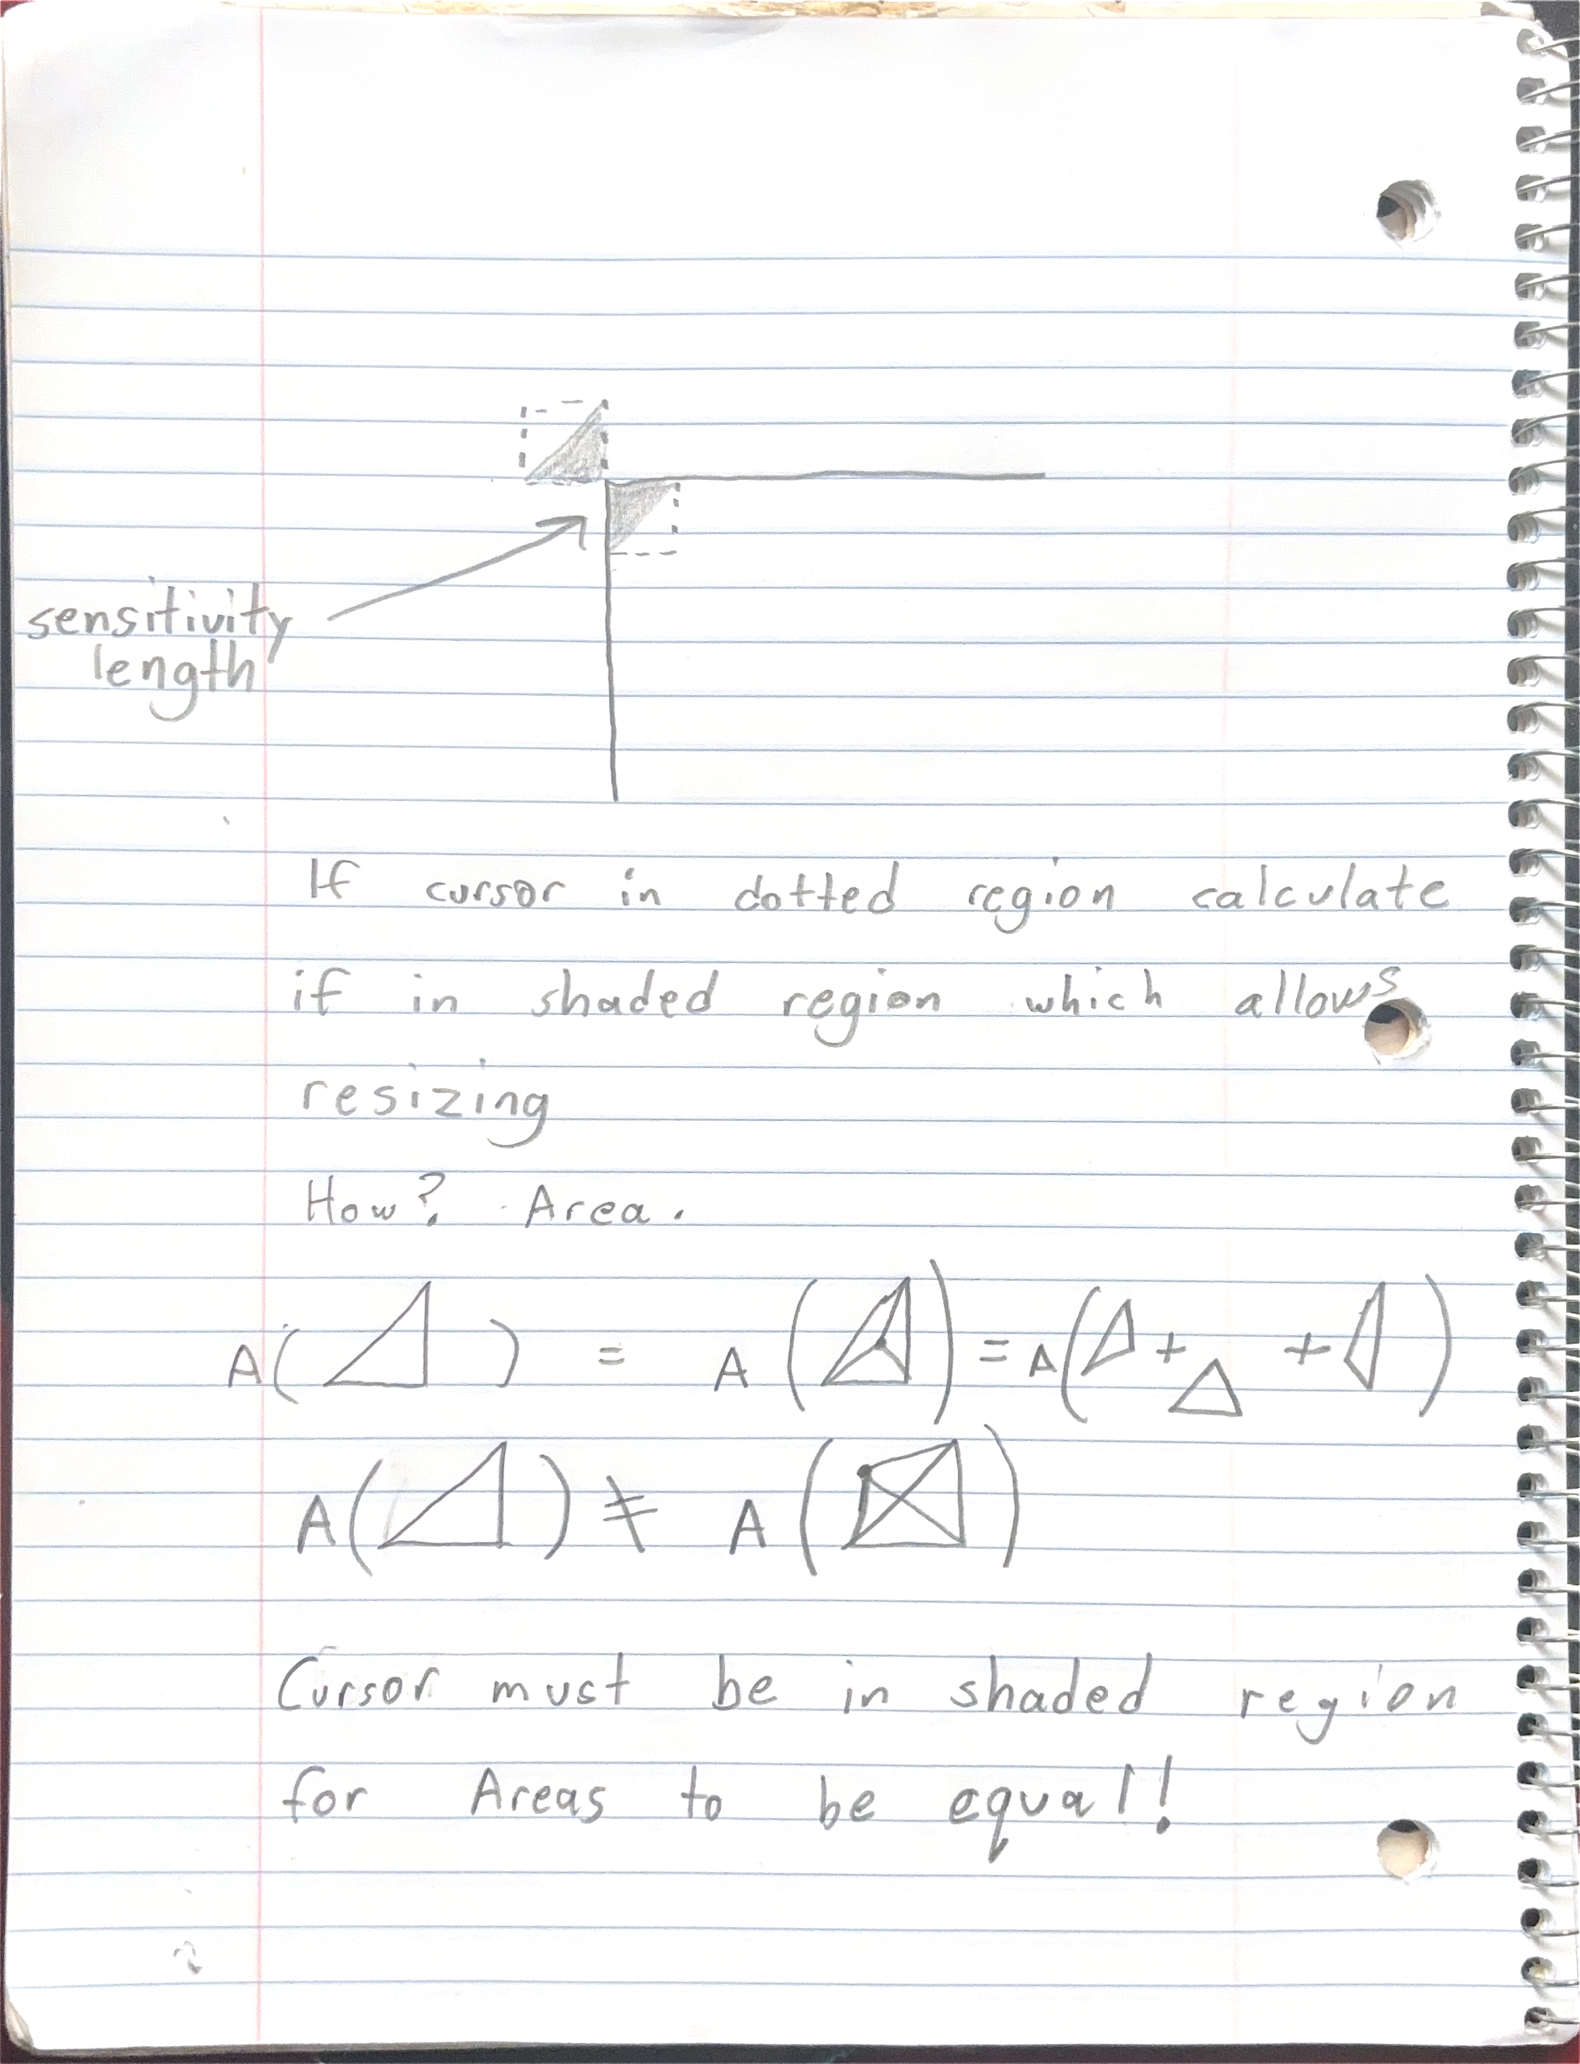 sensitivity
length
If cursor in dotted region calculate
if in shaded region which allows
resizing
How? Area.
A( ) = A ( ) = A( + + )
A( ) ≠ A ( )
Cursor must be in shaded region
for Areas to be equal!